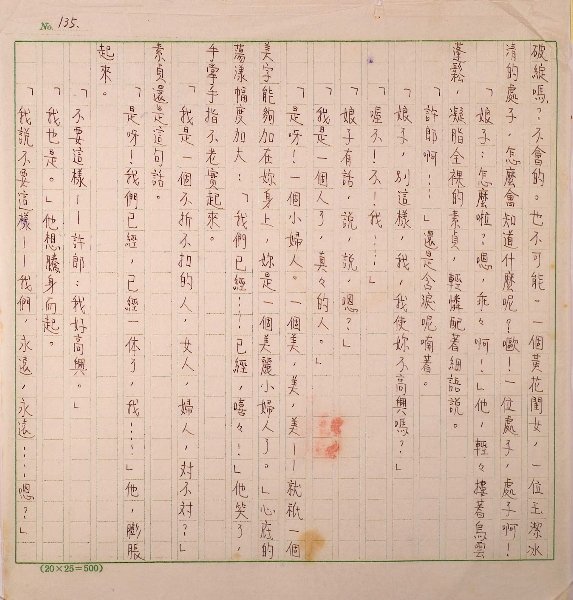 No. 135.
破綻嗎？不會的。也不可能。一個黃花閨女，一位玉潔冰
清的處子，怎麼會知道什麼呢？歐！一位處子，處子啊！
「娘子：怎麼啦？嗯，乖々啊！」他，輕々摟著烏雲
蓬鬆，凝脂全裸的素貞，輕憐配著細語說。
「許郎啊……」還是含淚呢喃著。
「娘子，別這樣，我，我使妳不高興嗎？」
「喔不！不！我……」
「娘子有話，說，說，嗯？」
「我是一個人了，真々的人。」
「是呀！一個小婦人。一個美，美，美——就祇一個
美字能夠加在妳身上，妳是一個美麗小婦人了。」心底的
蕩漾幅度加大：「我們已經……已經，嘻々！」他笑了，
手掌子指不老實起來。
「我是一個不折不扣的人，女人，婦人，對不對？」
素貞還是這句話。
「是呀！我們已經，已經一体了，我……」他，膨脹
起來。
「不要這樣——許郎：我好高興。」
「我也是。」他想騰身而起。
「我說不要這樣——我們，永遠，永遠……嗯？」
(20×25=500)